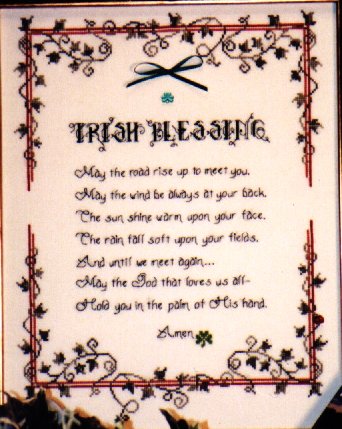 IRISH BLESSING
May the road rise up to meet you.
May the wind be always at your back.
The sun shine warm upon your face.
The rain fall soft upon your fields.
And until we meet again...
May the God that loves us all-
Hold you in the palm of His hand.
Amen